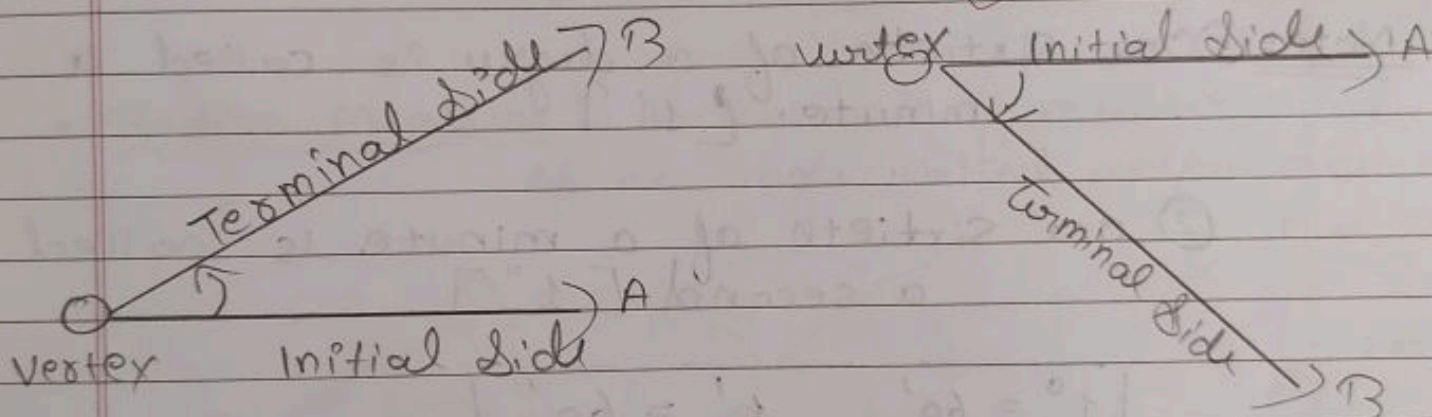 Terminal side B
A
O
vertex Initial side
vertex Initial side A
O
Terminal side
B